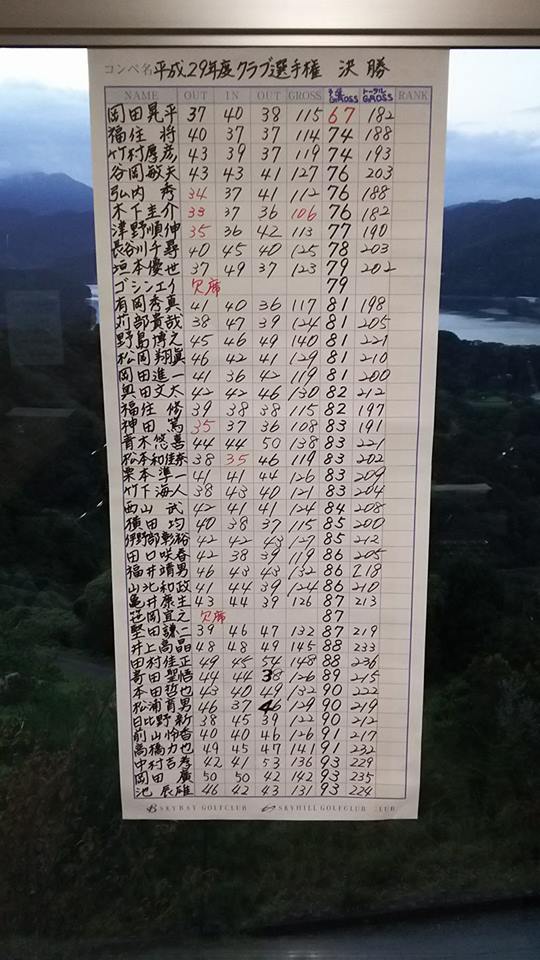 コンペ名 平成29年度クラブ選手権 決勝
NAME OUT IN OUT GROSS 予選GROSS トータルGROSS RANK
岡田晃平 37 40 38 115 67 182
福住 将 40 37 37 114 74 188
竹村厚彦 43 39 37 119 74 193
谷岡敏夫 43 43 41 127 76 203
弘内 秀 34 37 41 112 76 188
木下圭介 33 37 36 106 76 182
津野順伸 35 36 42 113 77 190
長谷川千尋 40 45 40 125 78 203
垣本優世 37 49 37 123 79 202
ゴシンエイ 欠席 79
有岡秀真 41 40 36 117 81 198
苅部貴哉 38 47 39 124 81 205
野島博之 45 46 49 140 81 221
松岡翔真 46 42 41 129 81 210
岡田進一 41 36 42 119 81 200
奥田文大 42 42 46 130 82 212
福住 修 39 38 38 115 82 197
神田 篤 35 37 36 108 83 191
青木悠喜 44 44 50 138 83 221
松本和佳奈 38 35 46 119 83 202
栗本準一 41 41 44 126 83 209
竹下海人 38 43 40 121 83 204
西山 武 42 41 41 124 84 208
横田 均 40 38 37 115 85 200
伊野部彰裕 42 42 43 127 85 212
田口咲春 42 38 39 119 86 205
福井靖男 46 43 43 132 86 218
山北和政 41 44 39 124 86 210
亀井康生 43 44 39 126 87 213
笹岡宜之 欠席 87
堅田謙二 39 46 47 132 87 219
井上高晶 48 48 49 145 88 233
田村佳正 49 45 54 148 88 236
寄田聖悟 44 44 38 126 89 215
本田哲也 43 40 49 132 90 222
松浦育男 46 37 46 129 90 219
日比野 新 38 45 39 122 90 212
前山怜香 40 40 46 126 91 217
高橋力也 49 45 47 141 91 232
中村吉孝 42 41 53 136 93 229
岡田 廣 50 50 42 142 93 235
池 辰雄 46 42 43 131 93 224
SKYBAY GOLFCLUB SKYHILL GOLFCLUB CLUB